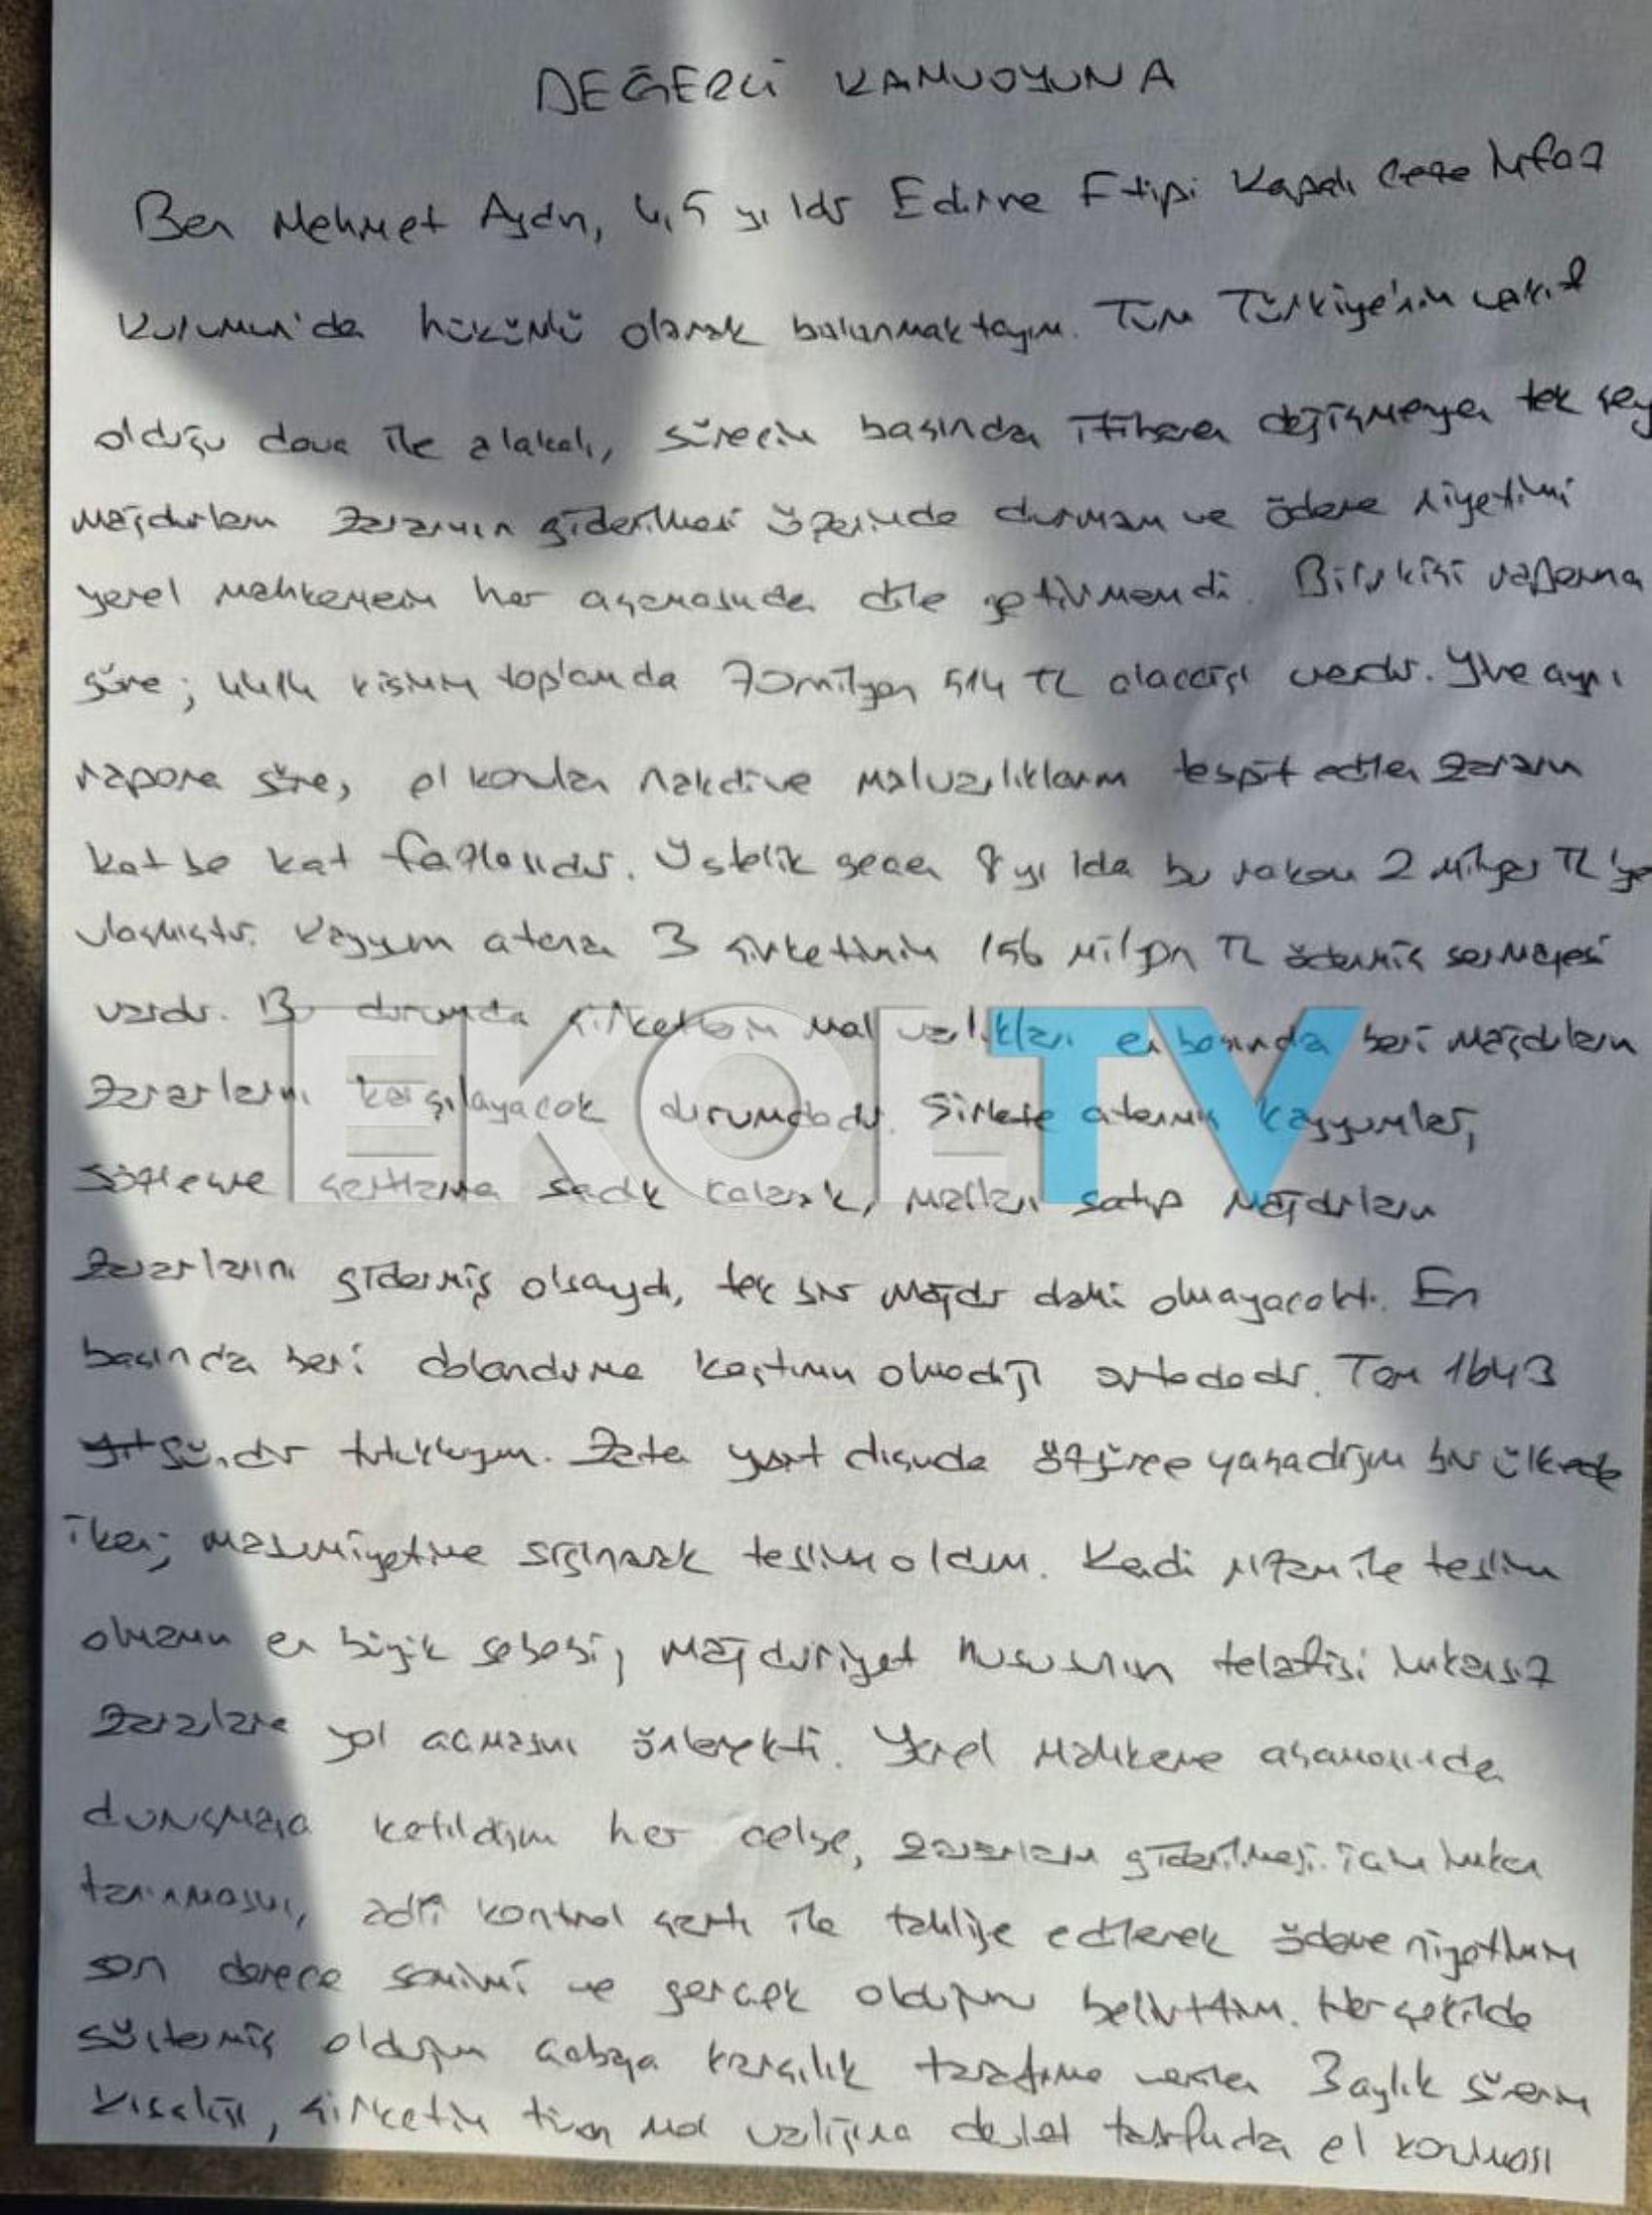 DEĞERLİ KAMUOYUNA
Ben Mehmet Aydın, 4,5 yıldır Edirne F tipi Kapalı Ceza İnfaz
Kurumun'da hükümlü olarak bulunmaktayım. Tüm Türkiye'nin vakıf
olduğu dava ile alakalı, sürecin başından itibaren değişmeyen tek şey
mağdurların zararının giderilmesi üzerinde durmam ve ödeme niyetimi
yerel mahkemenin her aşamasında dile getirmemdi. Bilirkişi raporuna
göre; 4414 kişinin toplamda 70 milyon 514 TL alacağı vardır. Yine aynı
rapora göre, el konulan nakdi ve malvarlıklarım tespit edilen zararın
kat be kat fazlasıdır. Üstelik geçen 8 yılda bu rakam 2 Milyar TL'ye
ulaşmıştır. Kayyum atanan 3 şirketimin 156 Milyon TL ödenmiş sermayesi
vardır. Bu durumda şirketlerin mal varlıkları en başından beri mağdurların
zararlarını karşılayacak durumdadır. Şirkete atanmış kayyumlar,
sözleşme şartlarına sadık kalarak, malları satıp mağdurların
zararlarını gidermiş olsaydı, tek bir mağdur dahi olmayacaktı. En
başından beri dolandırma kastımın olmadığı ortadadır. Tam 1643
gündür tutukluyum. Zaten yurt dışında özgürce yaşadığım bir ülkede
iken; masumiyetime sığınarak teslim oldum. Kendi rızam ile teslim
olmamın en büyük sebebi, mağduriyet hususunun telafisi imkansız
zararlara yol açmasını önlemekti. Yerel Mahkeme aşamasında
duruşmaya katıldığım her celse, zararların giderilmesi için imkan
tanınmasını, adli kontrol şartı ile tahliye edilerek ödeme niyetimin
son derece samimi ve gerçek olduğunu belirttim. Her şekilde
göstermiş olduğum çabaya karşılık tarafıma verilen 3 aylık sürenin
kısalığı, şirketin tüm mal varlığına devlet tarafından el konulması